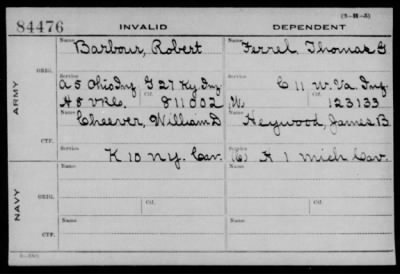 (3-H-5)
84476 INVALID DEPENDENT
Name Barbour, Robert Name Ferrel Thomas G
ORIG.
Service Ctf. Service Ctf.
A 5 Ohio Inf G 27 Ky Inf C 11 W. Va Inf.
ARMY
H 8 V.R.C. 811002 (W) 123133
Name Cheever, William D Name Heywood, James B
CTF.
Service Service
K 10 N.Y. Cav. (C) H 1 Mich Cav.
Name Name
ORIG.
Service Ctf. Service Ctf.
NAVY
Name Name
CTF.
Service Service